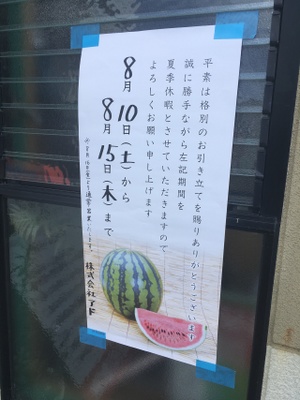 平素は格別のお引き立てを賜りありがとうございます
誠に勝手ながら左記期間を
夏季休暇とさせていただきますので
よろしくお願い申し上げます
8月10日(土)から
8月15日(木)まで
株式会社アド